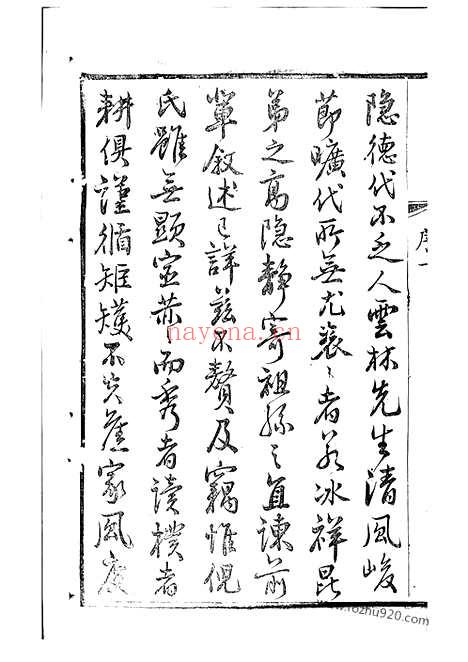 序一
隐德代不乏人雲林先生清風峻
節曠代所無尤表〻者若冰祥昆
弟之高隐静寄祖孫之直諫前
輩叙述已詳兹不贅及竊惟倪
氏雖無顯宦
而秀者读樸者
耕俱谨循矩矱不失舊家風度
nayona.cn
www.rozhu920.com